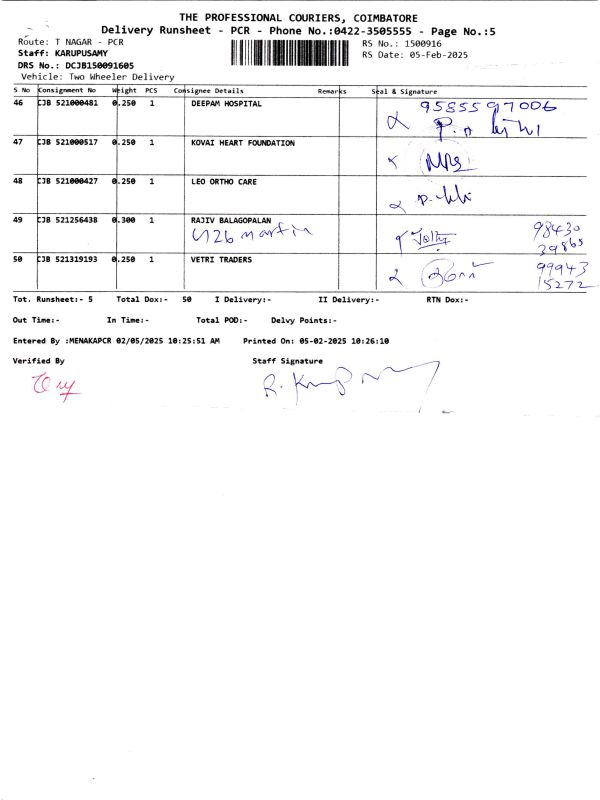 THE PROFESSIONAL COURIERS, COIMBATORE
Delivery Runsheet - PCR - Phone No.:0422-3505555 - Page No.:5
Route: T NAGAR - PCR
RS No.: 1500916
Staff: KARUPUSAMY
RS Date: 05-Feb-2025
DRS No.: DCJB150091605
Vehicle: Two Wheeler Delivery
S No Consignment No Weight PCS Consignee Details Remarks Seal & Signature
46 CJB 521000481 0.250 1 DEEPAM HOSPITAL 9585597006
47 CJB 521000517 0.250 1 KOVAI HEART FOUNDATION
48 CJB 521000427 0.250 1 LEO ORTHO CARE
49 CJB 521256438 0.300 1 RAJIV BALAGOPALAN 98430
martin 39865
50 CJB 521319193 0.250 1 VETRI TRADERS 99943
15272
Tot. Runsheet:- 5 Total Dox:- 50 I Delivery:- II Delivery:- RTN Dox:-
Out Time:- In Time:- Total POD:- Delvy Points:-
Entered By :MENAKAPCR 02/05/2025 10:25:51 AM Printed On: 05-02-2025 10:26:10
Verified By Staff Signature